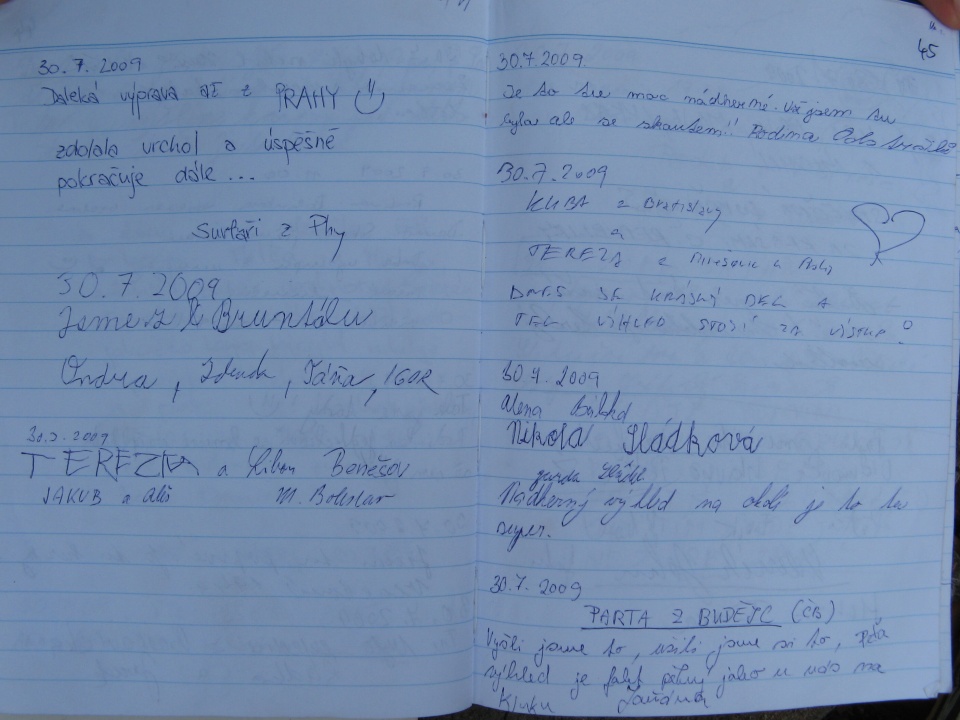 30.7.2009
Daleká výprava až z PRAHY
zdolala vrchol a úspěšně
pokračuje dále ...
Surfaři z Phy
30.7.2009
Jsme z Bruntálu
Ondra, Zdenda, Táňa, IGOR
30.7.2009
TEREZA a Libor Benešov
JAKUB a Aleš M. Boleslav
45
30.7.2009
Je to tu moc nádherné. Už jsem tu
byla ale se skautem!! Rodina
30.7.2009
KUBA z Bratislavy
a
TEREZA z a
DNES JE KRÁSNÝ DEN A
TEN VÝHLED STOJÍ ZA VÝSTUP!
30.7.2009
Alena
Nikola Sládková
Nádherný výhled na okolí je to tu
super.
30.7.2009
PARTA Z BUDĚJC (ČB)
Vyšli jsme to, užili jsme si to,
výhled je fakt pěkný jako u nás na
Kluku